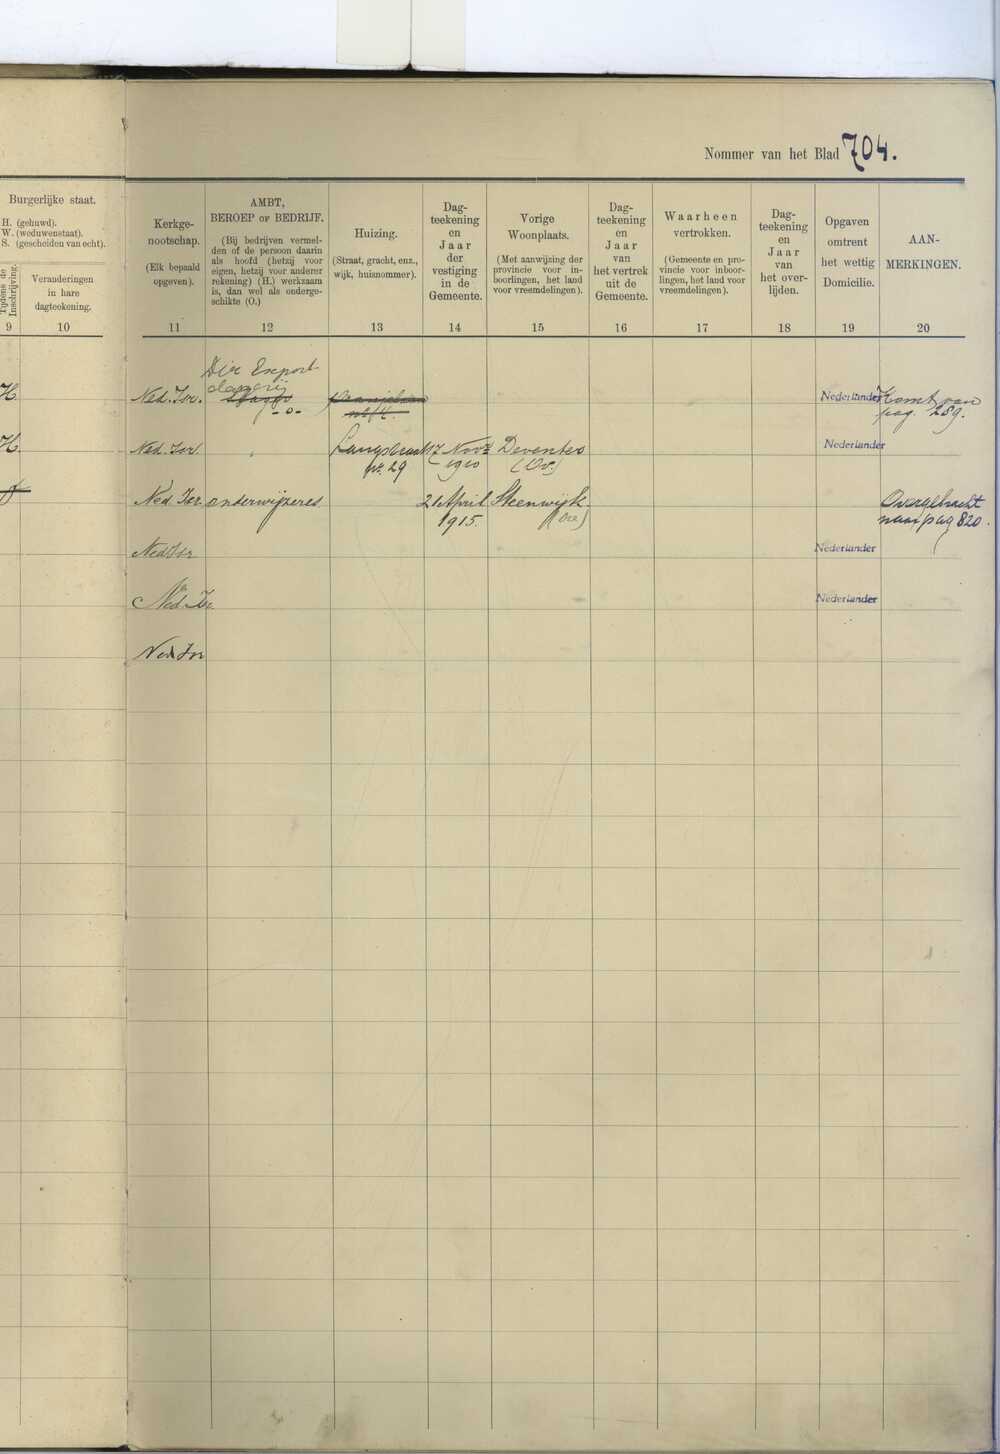 Nommer van het Blad 704.
Burgerlijke staat.
H. (gehuwd).
W. (weduwenstaat).
S. (gescheiden van echt).
Tijdens de
Inschrijving.
Veranderingen
in hare
dagteekening.
Kerkge-
nootschap.
(Elk bepaald
opgeven).
AMBT,
BEROEP OF BEDRIJF.
(Bij bedrijven vermel-
den of de persoon daarin
als hoofd (hetzij voor
eigen, hetzij voor anderer
rekening) (H.) werkzaam
is, dan wel als onderge-
schikte (O.)
Huizing.
(Straat, gracht, enz.,
wijk, huisnommer).
Dag-
teekening
en
Jaar
der
vestiging
in de
Gemeente.
Vorige
Woonplaats.
(Met aanwijzing der
provincie voor in-
boorlingen, het land
voor vreemdelingen).
Dag-
teekening
en
Jaar
van
het vertrek
uit de
Gemeente.
Waarheen
vertrokken.
(Gemeente en pro-
vincie voor inboor-
lingen, het land voor
vreemdelingen).
Dag-
teekening
en
Jaar
van
het over-
lijden.
Opgaven
omtrent
het wettig
Domicilie.
AAN-
MERKINGEN.
9 10 11 12 13 14 15 16 17 18 19 20
Dir Export
H. Ned. Isr. Nederlander Komt van
-o- pag. 289.
H. Ned. Isr. 17 Novr Deventer Nederlander
nr. 29 1910 (Ov.)
Ned Isr. onderwijzeres 21 April Steenwijk. Overgebracht
1915. (Ove) naar pag 820.
Ned Isr Nederlander
Ned. Isr Nederlander
Ned Isr